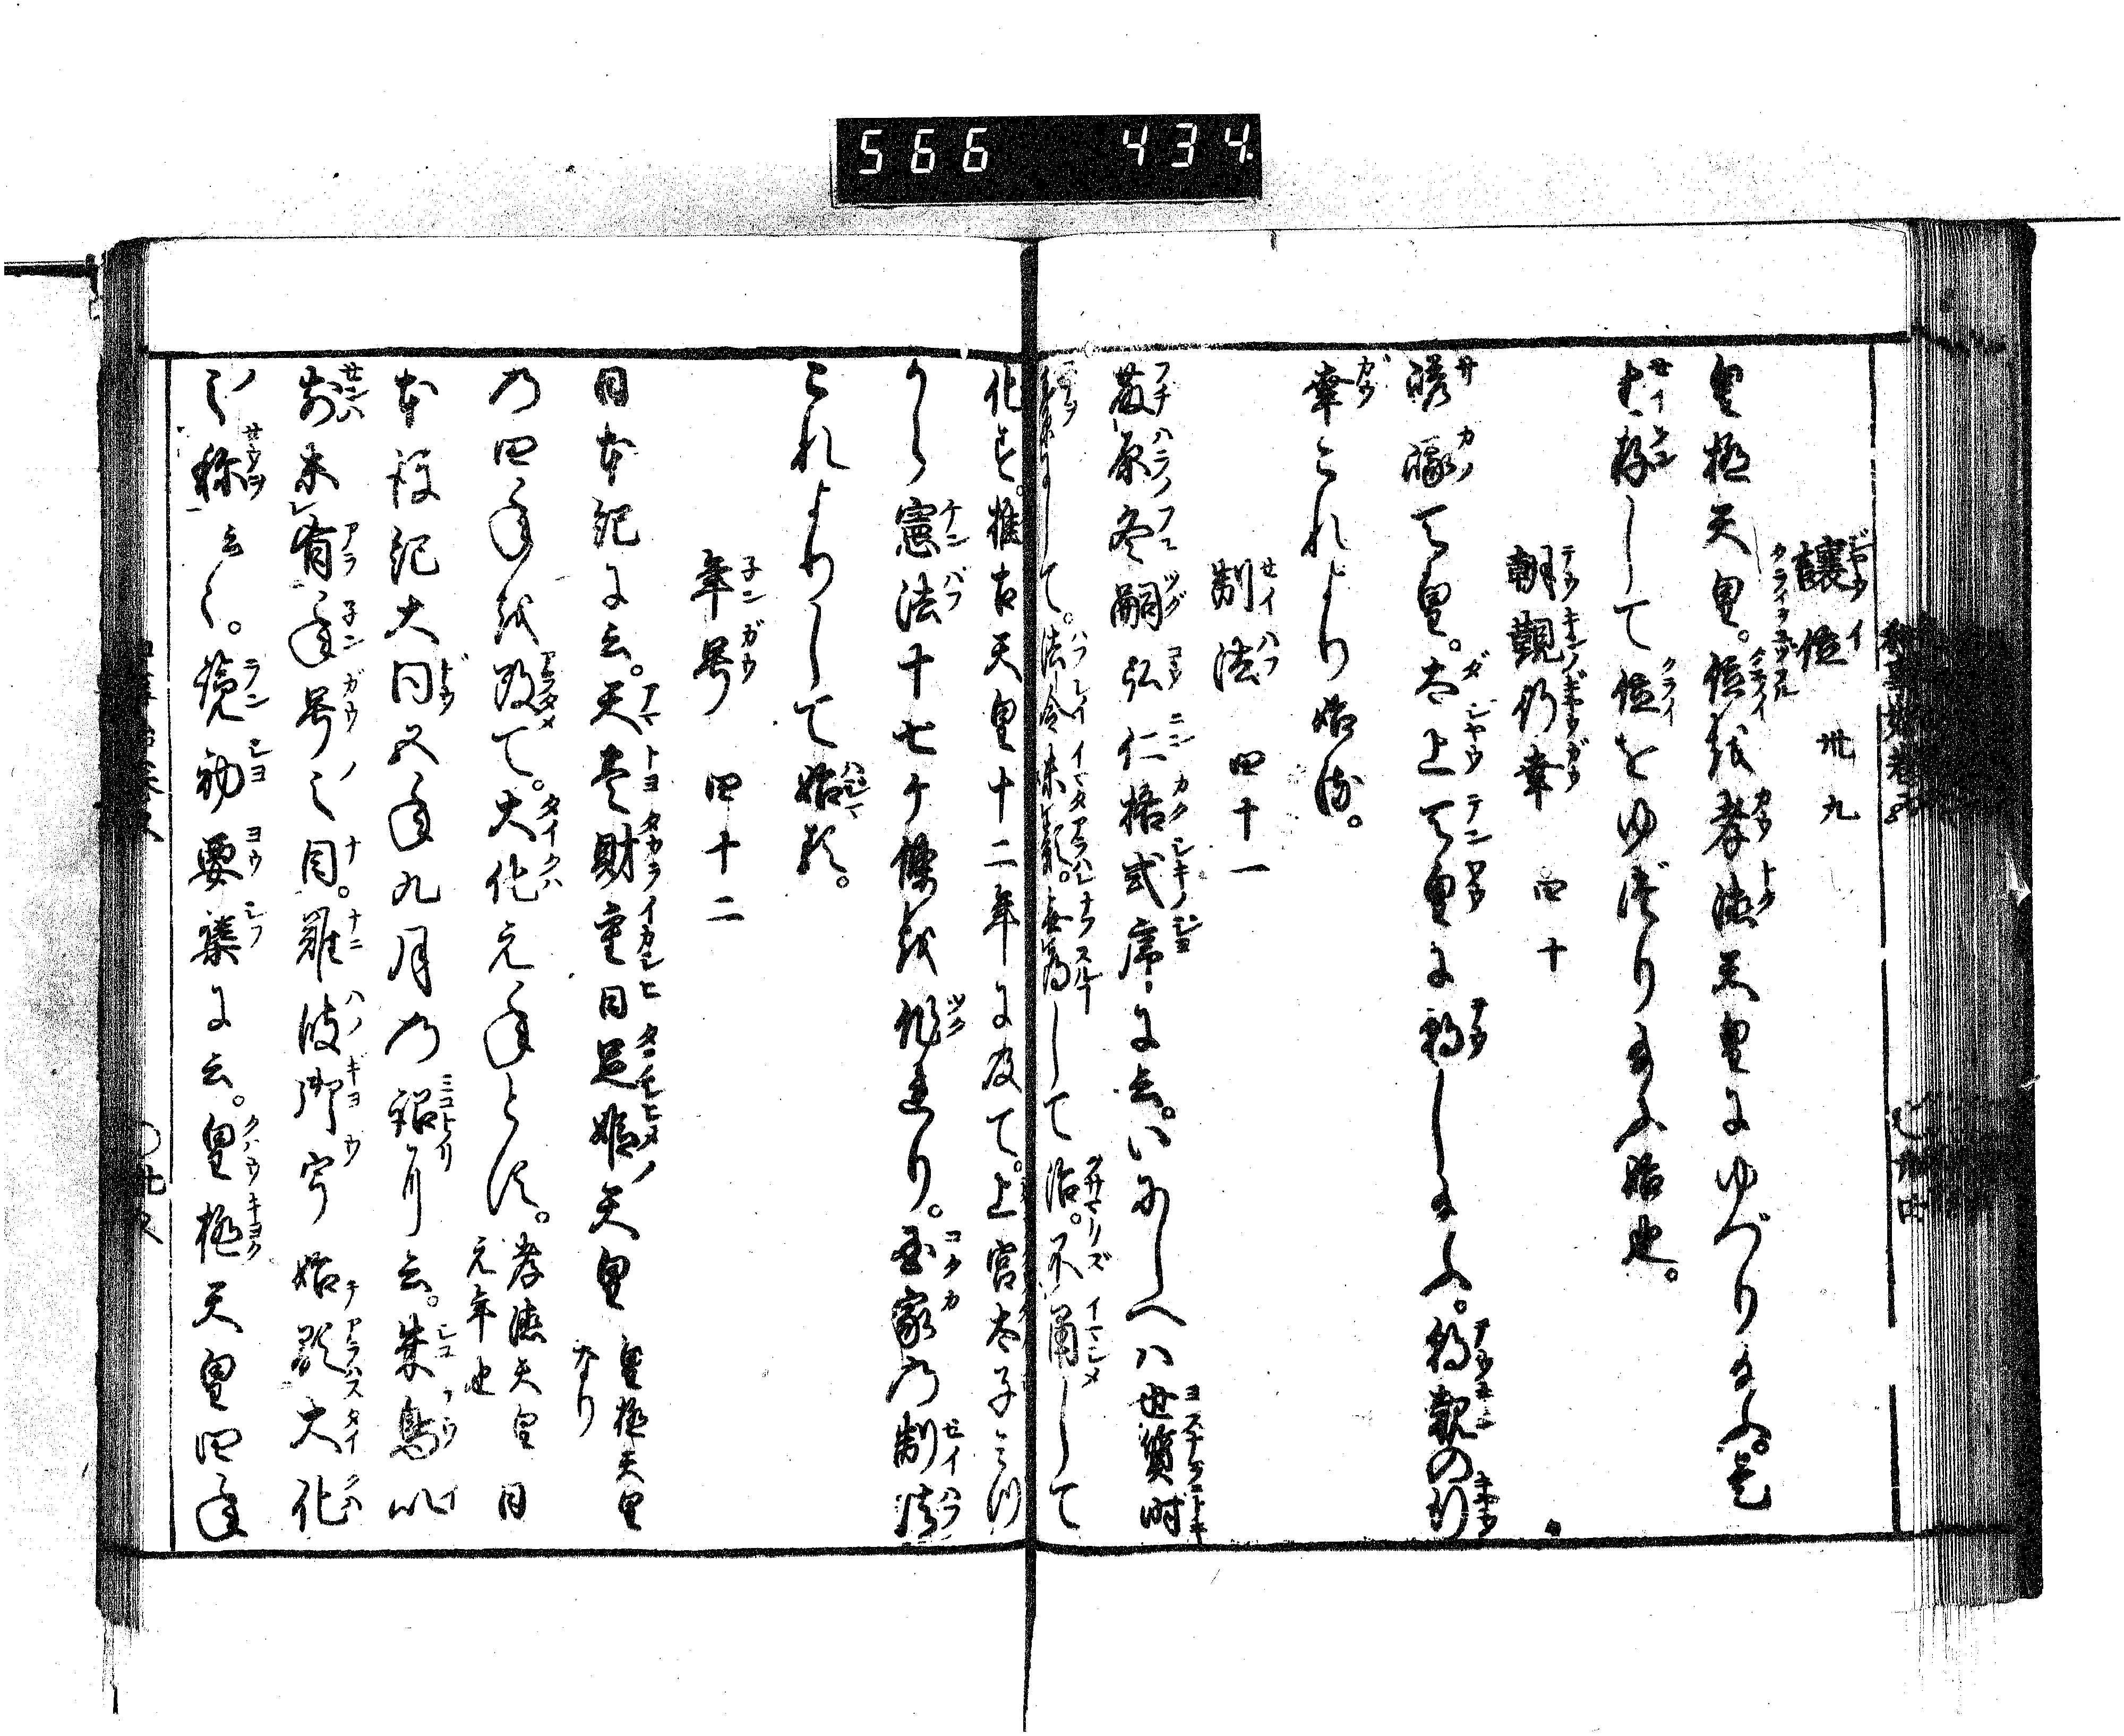 566 434
讓位 卅九
皇極天皇。位を孝徳天皇にゆづり玉ふ。是
在存して位をゆづり玉ふ始也。
朝覲行幸 四十
嵯峨天皇。太上天皇に朝し玉ふ。朝覲の行
幸これより始る。
制法 四十一
藤原冬嗣弘仁格式序に云。いにしへハ世質時
素にして。法令未彰。無為して治。不肅して
化す。推古天皇十二年に及て。上宮太子みづ
から憲法十七ケ條を作玉り。国家の制法
これよりして始る。
年号 四十二
日本紀に云。天豊財重日足姫ノ天皇 皇極天皇なり
の四年を改て。大化元年とす。孝徳天皇元年也 日
本後紀大同五年九月の詔に云。朱鳥以
前未有年号之目。難波御宇始顕大化
之称云々。濫觴要集に云。皇極天皇四年